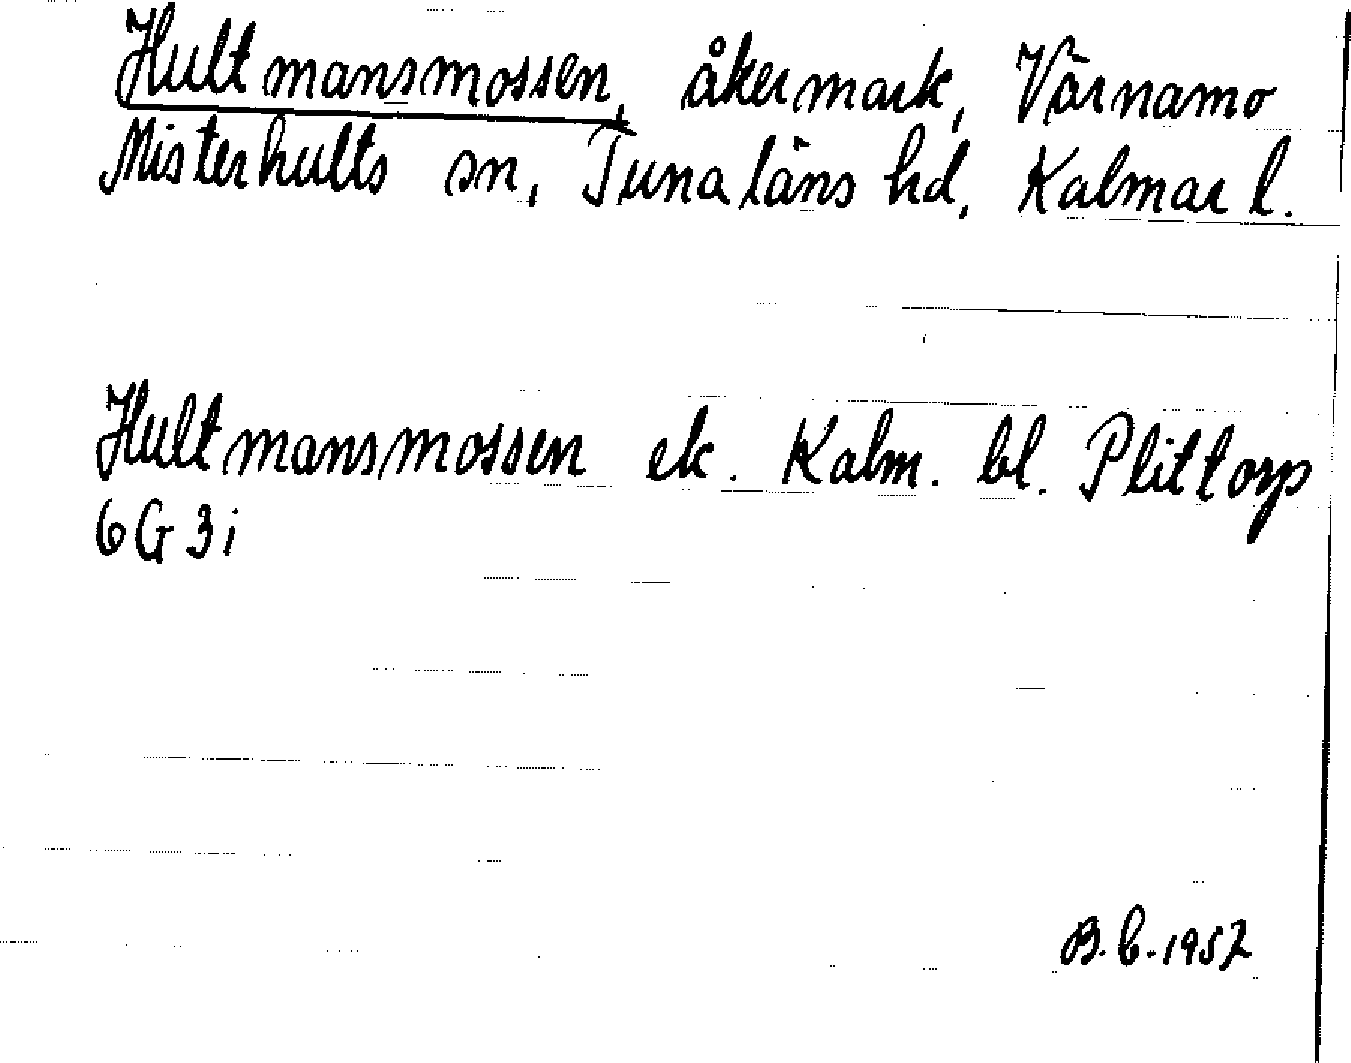 Hultmansmossen, åkermark, Värnamo
Misterhults sn, Tunaläns hd, Kalmar l.
Hultmansmossen ek. Kalm. bl. Plittorp
6G3i
B.b.1957